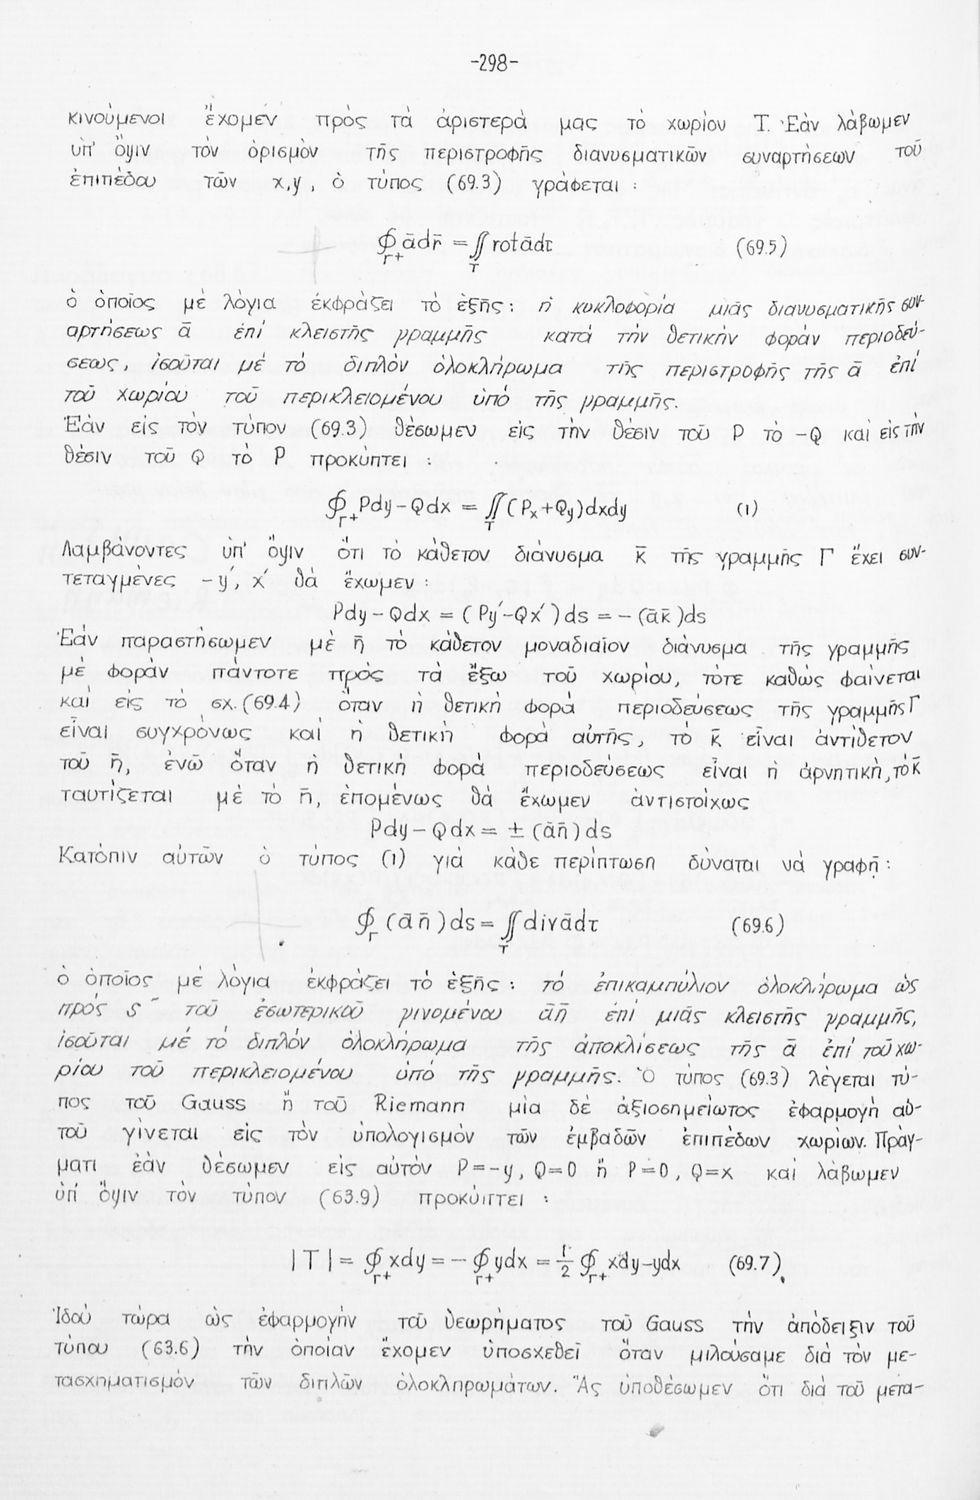 -298-
κινούμενοι ἔχομεν πρὸς τὰ ἀριστερὰ μας τὸ χωρίον Τ. Ἐὰν λάβωμεν
ὑπ' ὄψιν τὸν ὁρισμὸν τῆς περιστροφῆς διανυσματικῶν συναρτήσεων τοῦ
ἐπιπέδου τῶν x,y , ὁ τύπος (69.3) γράφεται :
∮_{Γ+} ādr̄ = ∬_T rotādτ (69.5)
ὁ ὁποῖος μὲ λόγια ἐκφράζει τὸ ἑξῆς : ἡ κυκλοφορία μιᾶς διανυσματικῆς συν-
αρτήσεως ā ἐπὶ κλειστῆς γραμμῆς κατὰ τὴν θετικὴν φορὰν περιοδεύ-
σεως, ἰσοῦται μὲ τὸ διπλὸν ὁλοκλήρωμα τῆς περιστροφῆς τῆς ā ἐπὶ
τοῦ χωρίου τοῦ περικλειομένου ὑπὸ τῆς γραμμῆς.
Ἐὰν εἰς τὸν τύπον (69.3) θέσωμεν εἰς τὴν θέσιν τοῦ P τὸ -Q καὶ εἰς τὴν
θέσιν τοῦ Q τὸ P προκύπτει :
∮_{Γ+} Pdy-Qdx = ∬_T (P_x+Q_y)dxdy (1)
Λαμβάνοντες ὑπ' ὄψιν ὅτι τὸ κάθετον διάνυσμα k̄ τῆς γραμμῆς Γ ἔχει συν-
τεταγμένες -y', x' θὰ ἔχωμεν :
Pdy-Qdx = (Py'-Qx')ds = -(āk̄)ds
Ἐὰν παραστήσωμεν μὲ η̄ τὸ κάθετον μοναδιαῖον διάνυσμα τῆς γραμμῆς
μὲ φορὰν πάντοτε πρὸς τὰ ἔξω τοῦ χωρίου, τότε καθὼς φαίνεται
καὶ εἰς τὸ σχ.(69.4) ὅταν ἡ θετικὴ φορὰ περιοδεύσεως τῆς γραμμῆς Γ
εἶναι συγχρόνως καὶ ἡ θετικὴ φορὰ αὐτῆς, τὸ k̄ εἶναι ἀντίθετον
τοῦ η̄, ἐνῶ ὅταν ἡ θετικὴ φορὰ περιοδεύσεως εἶναι ἡ ἀρνητικὴ, τὸ k̄
ταυτίζεται μὲ τὸ η̄, ἑπομένως θὰ ἔχωμεν ἀντιστοίχως
Pdy-Qdx = ± (āη̄)ds
Κατόπιν αὐτῶν ὁ τύπος (1) γιὰ κάθε περίπτωση δύναται νὰ γραφῇ :
∮_Γ (āη̄)ds = ∬_T divādτ (69.6)
ὁ ὁποῖος μὲ λόγια ἐκφράζει τὸ ἑξῆς : τὸ ἐπικαμπύλιον ὁλοκλήρωμα ὡς
πρὸς s τοῦ ἐσωτερικοῦ γινομένου āη̄ ἐπὶ μιᾶς κλειστῆς γραμμῆς,
ἰσοῦται μὲ τὸ διπλὸν ὁλοκλήρωμα τῆς ἀποκλίσεως τῆς ā ἐπὶ τοῦ χω-
ρίου τοῦ περικλειομένου ὑπὸ τῆς γραμμῆς. Ὁ τύπος (69.3) λέγεται τύ-
πος τοῦ Gauss ἢ τοῦ Riemann μία δὲ ἀξιοσημείωτος ἐφαρμογὴ αὐ-
τοῦ γίνεται εἰς τὸν ὑπολογισμὸν τῶν ἐμβαδῶν ἐπιπέδων χωρίων. Πράγ-
ματι ἐὰν θέσωμεν εἰς αὐτὸν P=-y, Q=0 ἢ P=0, Q=x καὶ λάβωμεν
ὑπ' ὄψιν τὸν τύπον (63.9) προκύπτει :
|T| = ∮_{Γ+} xdy = - ∮_{Γ+} ydx = 1/2 ∮_{Γ+} xdy-ydx (69.7)
Ἰδοὺ τώρα ὡς ἐφαρμογὴν τοῦ θεωρήματος τοῦ Gauss τὴν ἀπόδειξιν τοῦ
τύπου (63.6) τὴν ὁποίαν ἔχομεν ὑποσχεθεῖ ὅταν μιλούσαμε διὰ τὸν με-
τασχηματισμὸν τῶν διπλῶν ὁλοκληρωμάτων. Ἂς ὑποθέσωμεν ὅτι διὰ τοῦ μετα-